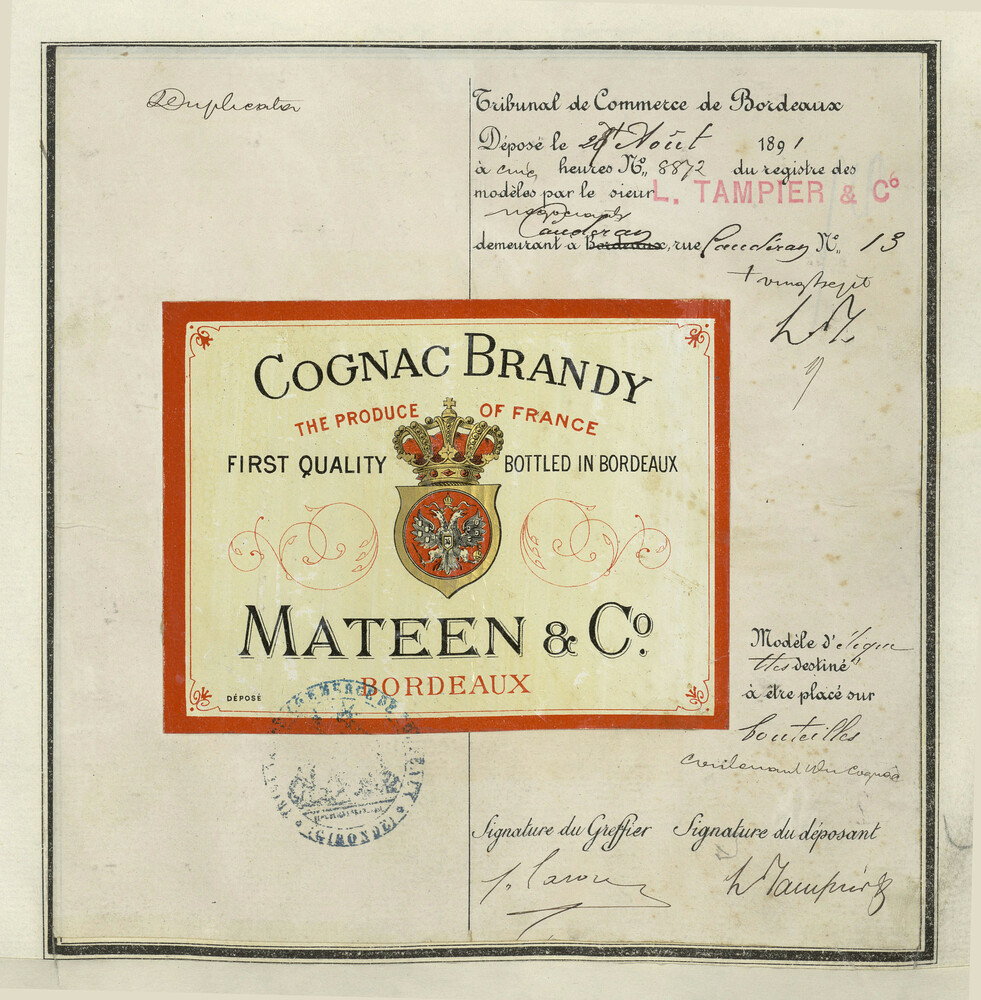 Duplicata
Tribunal de Commerce de Bordeaux
Déposé le Août 1891
à cinq heures No. 8872 du registre des
modèles par le sieur L. TAMPIER & Co
négociants
Caudéran
demeurant à Bordeaux, rue Caudéran No. 13
+ vingt sept
LT
COGNAC BRANDY
THE PRODUCE OF FRANCE
FIRST QUALITY BOTTLED IN BORDEAUX
MATEEN & Co.
BORDEAUX
DÉPOSÉ
Modèle d'étique
ttes destiné
à être placé sur
bouteilles
contenant du Cognac
(GIRONDE)
Signature du Greffier Signature du déposant
L Tampier